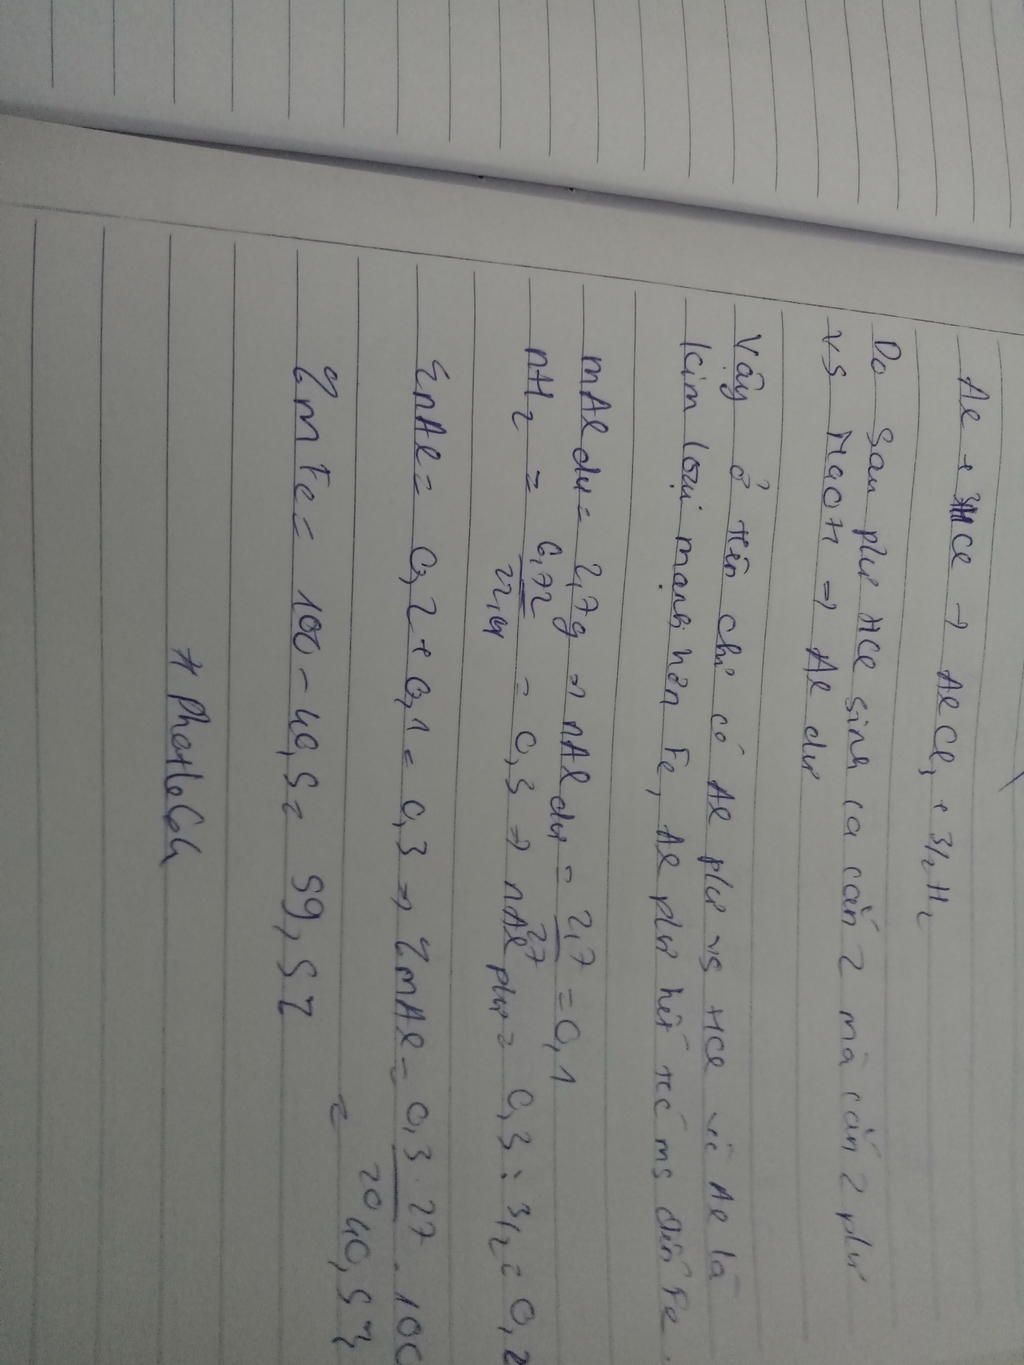 Al + 3HCl → AlCl3 + 3/2 H2
Do sau pứ HCl sinh ra cắn Z mà cắn Z pứ
vs NaOH → Al dư
Vậy ở trên chỉ có Al pứ vs HCl vì Al là
kim loại mạnh hơn Fe, Al pứ hết trc ms đến Fe.
mAl dư = 2,7g → nAl dư = 2,7/27 = 0,1
nH2 = 6,72/22,4 = 0,3 → nAl pứ = 0,3 : 3/2 = 0,2
ΣnAl = 0,2 + 0,1 = 0,3 → %mAl = 0,3.27/20 .100
= 40,5%
%mFe = 100 - 40,5 = 59,5%